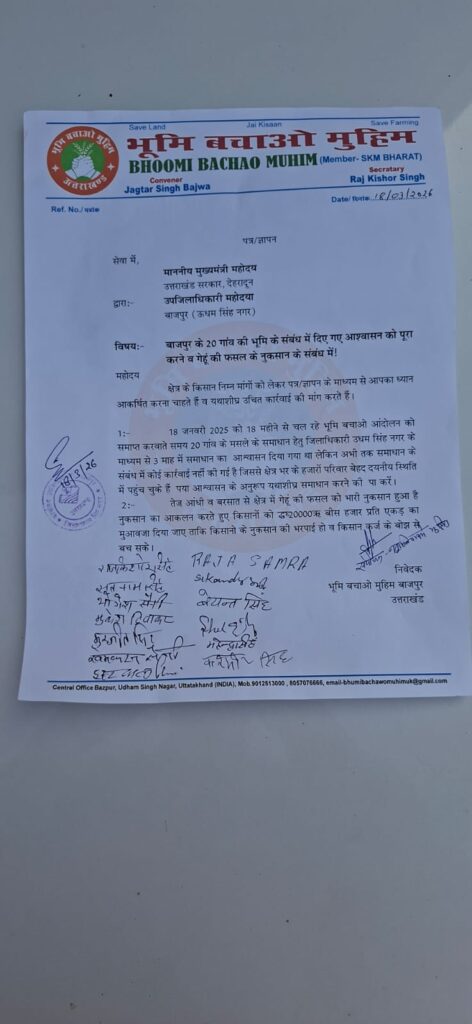 Save Land Jai Kisaan Save Farming
भूमि बचाओ मुहिम
उत्तराखण्ड
भूमि बचाओ मुहिम
BHOOMI BACHAO MUHIM (Member- SKM BHARAT)
Convener Secratary
Jagtar Singh Bajwa Raj Kishor Singh
Ref. No./पत्रांक Date/दिनांक 18/03/2026
पत्र/ज्ञापन
सेवा में,
माननीय मुख्यमंत्री महोदय
उत्तराखंड सरकार, देहरादून
द्वाराः- उपजिलाधिकारी महोदया
बाजपुर (ऊधम सिंह नगर)
विषयः- बाजपुर के 20 गांव की भूमि के संबंध में दिए गए आश्वासन को पूरा
करने व गेहूं की फसल के नुकसान के संबंध में!
महोदय
क्षेत्र के किसान निम्न मांगों को लेकर पत्र/ज्ञापन के माध्यम से आपका ध्यान
आकर्षित करना चाहते हैं व यथाशीघ्र उचित कार्रवाई की मांग करते हैं।
1:- 18 जनवरी 2025 को 18 महीने से चल रहे भूमि बचाओ आंदोलन को
समाप्त करवाते समय 20 गांव के मसले के समाधान हेतु जिलाधिकारी उधम सिंह नगर के
माध्यम से 3 माह में समाधान का आश्वासन दिया गया था लेकिन अभी तक समाधान के
संबंध में कोई कार्रवाई नहीं की गई है जिससे क्षेत्र भर के हजारों परिवार बेहद दयनीय स्थिति
में पहुंच चुके हैं पया आश्वासन के अनुरूप यथाशीघ्र समाधान करने की पा करें।
2:- तेज आंधी व बरसात से क्षेत्र में गेहूं की फसल को भारी नुकसान हुआ है
नुकसान का आकलन करते हुए किसानों को द्धरु20000ऋ बीस हजार प्रति एकड़ का
मुआवजा दिया जाए ताकि किसानो के नुकसान की भरपाई हो व किसान कर्ज के बोझ से
बच सके।
18/3/26
निवेदक
भूमि बचाओ मुहिम बाजपुर
उत्तराखंड
RAJA SAMRA
बेयन्त सिंह
Central Office Bazpur, Udham Singh Nagar, Uttatakhand (INDIA), Mob.9012613000 , 8057076666, email-bhumibachawomuhimuk@gmail.com